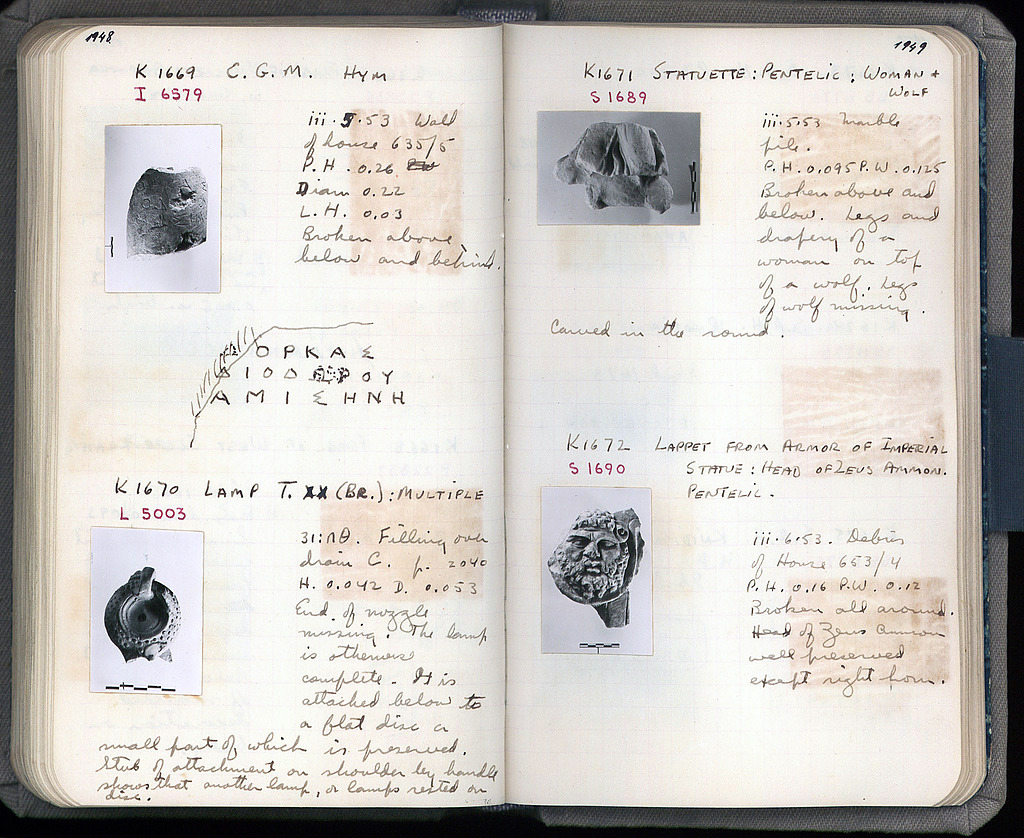 1948
K 1669 C.G.M. Hym
I 6579
iii.5.53 Wall
of house 635/5
P.H. 0.26
Diam 0.22
L.H. 0.03
Broken above
below and behind.
ΟΡΚΑΣ
ΔΙΟΔΩΡΟΥ
ΑΜΙΣΗΝΗ
K 1670 LAMP T. XX (BR.): MULTIPLE
L 5003
31:ΠΘ. Filling over
drain C. p. 2040
H. 0.042 D. 0.053
End of nozzle
missing. The lamp
is otherwise
complete. It is
attached below to
a flat disc a
small part of which is preserved.
Stub of attachment on shoulder by handle
shows that another lamp, or lamps rested on
disc.
1949
K1671 STATUETTE: PENTELIC; WOMAN +
WOLF
S 1689
iii.5.53 Marble
pile.
P.H. 0.095 P.W. 0.125
Broken above and
below. Legs and
drapery of a
woman on top
of a wolf. Legs
of wolf missing.
Carved in the round.
K1672 LAPPET FROM ARMOR OF IMPERIAL
S 1690 STATUE: HEAD OF ZEUS AMMON.
PENTELIC.
iii.6.53. Debris
of House 653/4
P.H. 0.16 P.W. 0.12
Broken all around.
Head of Zeus Ammon
well preserved
except right horn.